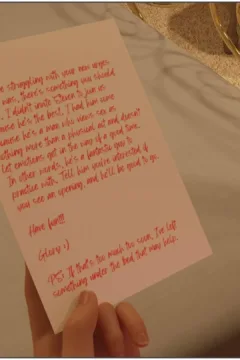 re struggling with your new urges
man, there's something you should
. I didn't invite Steven to join us
ause he's the best. I had him come
ause he's a man who views sex as
othing more than a physical act and doesn't
let emotions get in the way of a good time.
In other words, he's a fantastic guy to
practice with. Tell him you're interested if
you see an opening, and he'll be good to go.
Have fun!!!
:)
PS: If that's too much too soon, I've left
something under the bed that may help.